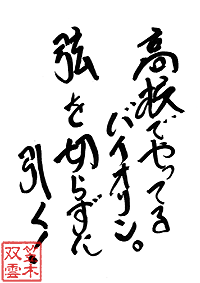 高振でやってる
バイオリン。
弦を切らずに
引く!
双雲